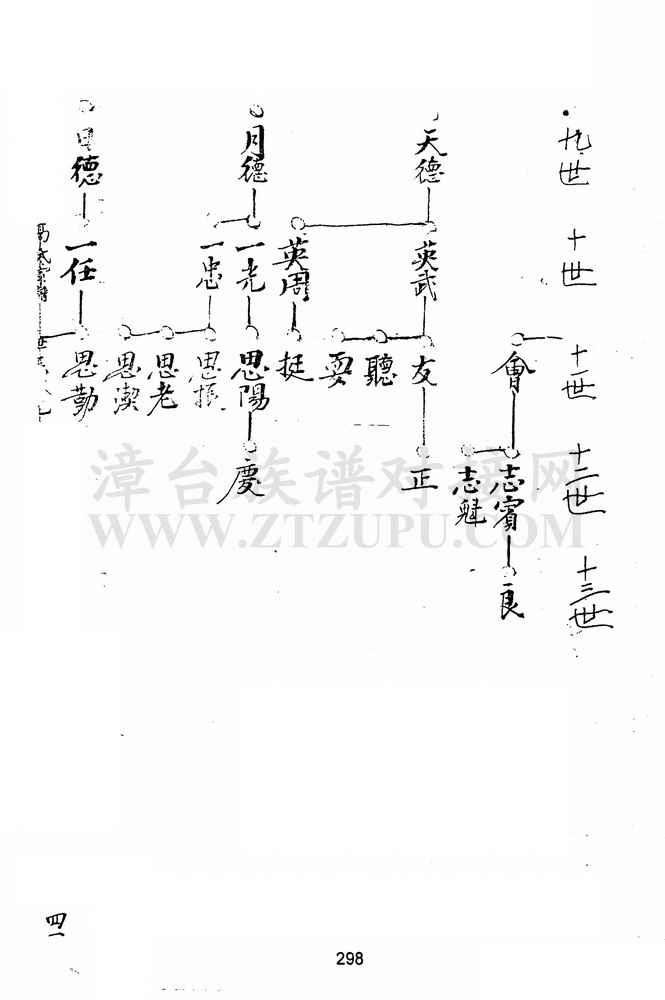 九世
十世
十一世
十二世
十三世
會
志賓
志魁
良
天德
英武
英周
友
聽
耍
挺
正
月德
一光
一忠
思陽
思振
思老
思潔
慶
日德
一任
思勤
漳台族谱对接网
WWW.ZTZUPU.COM
四一
298